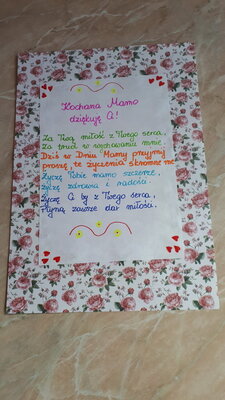 Kochana Mamo
dziękuję Ci!
Za Twą miłość z Twego serca,
Za trud w wychowaniu mnie.
Dziś w Dniu Mamy przyjmij
proszę, te życzenia skromne me
Życzę Tobie mamo szczerze,
życzę zdrowia i radości.
Życzę Ci by z Twego serca,
Płynął zawsze dar miłości.